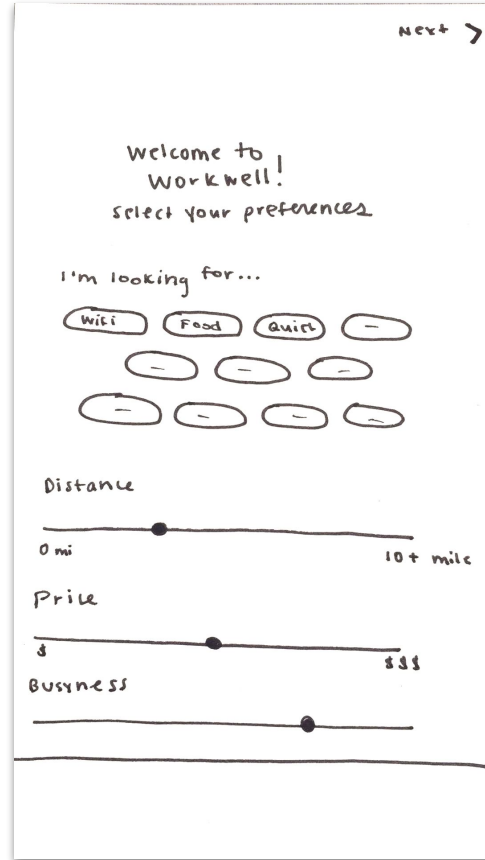 Next >
Welcome to
Workwell!
select your preferences
I'm looking for...
Wifi
Food
Quiet
Distance
0 mi
10+ mile
Price
$
$$$
Busyness